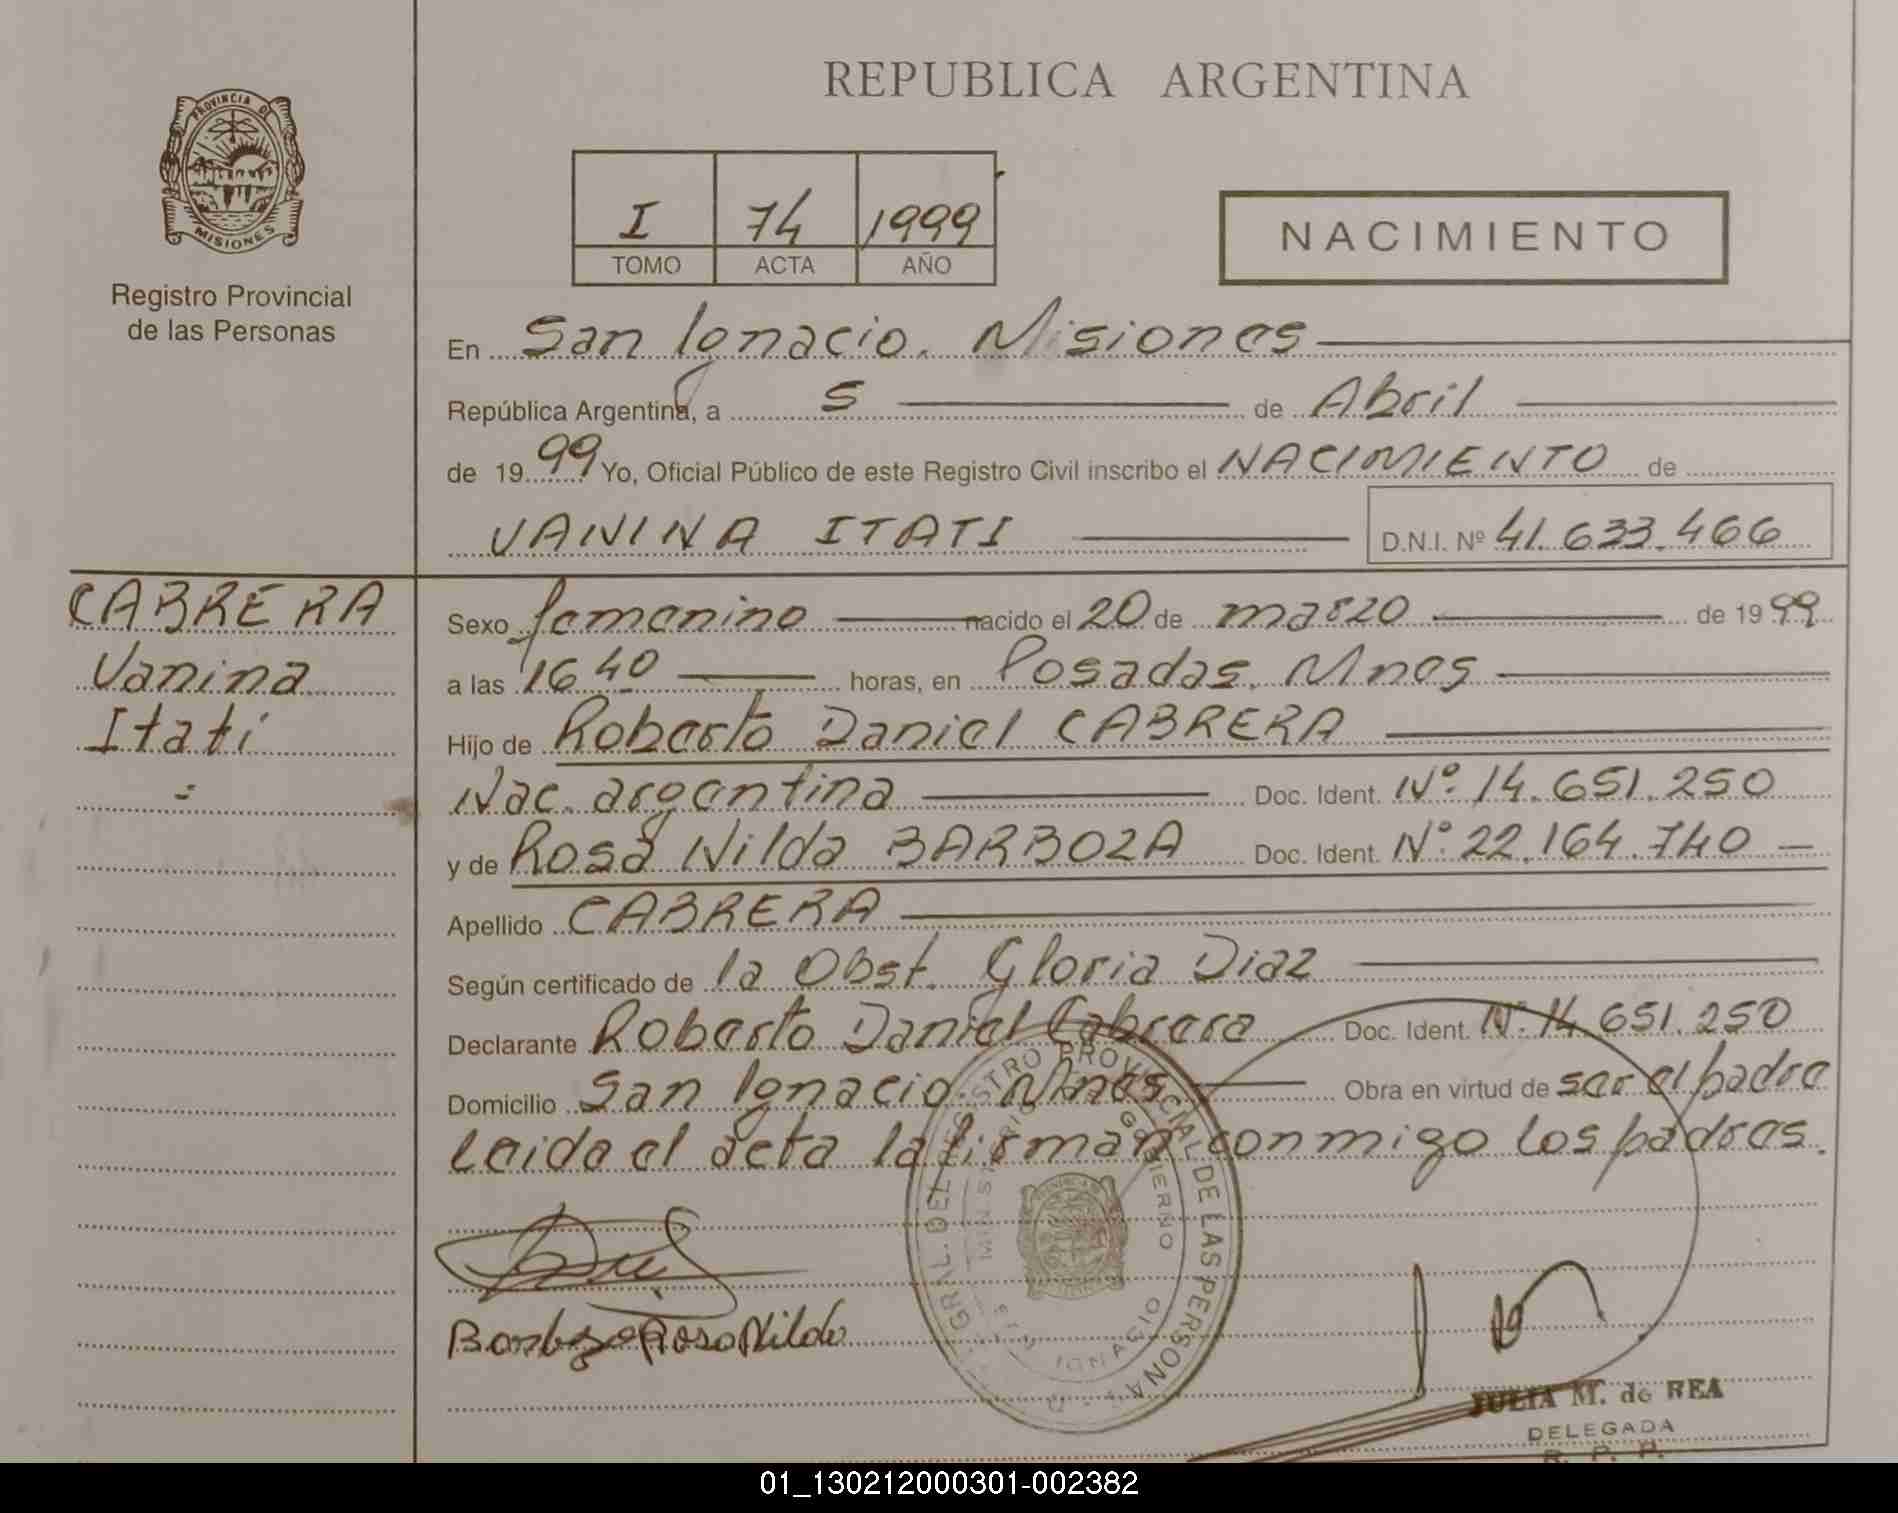 REPUBLICA ARGENTINA
PROVINCIA DE
MISIONES
Registro Provincial
de las Personas
I 74 1999
TOMO ACTA AÑO
NACIMIENTO
En San Ignacio. Misiones
República Argentina, a 5 de Abril
de 1999 Yo, Oficial Público de este Registro Civil inscribo el NACIMIENTO de
VANINA ITATI D.N.I. Nº 41.633.466
CABRERA
Vanina
Itatí
Sexo femenino nacido el 20 de marzo de 1999
a las 16 40 horas, en Posadas. Mnes
Hijo de Roberto Daniel CABRERA
Nac. argentina Doc. Ident. Nº. 14.651.250
y de Rosa Nilda BARBOZA Doc. Ident. Nº. 22.164.740
Apellido CABRERA
Según certificado de la Obst. Gloria Diaz
Declarante Roberto Daniel Cabrera Doc. Ident. Nº. 14.651.250
Domicilio San Ignacio. Mnes Obra en virtud de ser el padre
Leida el acta la firman conmigo los padres.
GRAL. DEL REGISTRO PROVINCIAL DE LAS PERSONAS
GOBIERNO
IGNACIO
Barboza Rosa Nilda
JULIA M. de REA
DELEGADA
R. P. P.
01_130212000301-002382